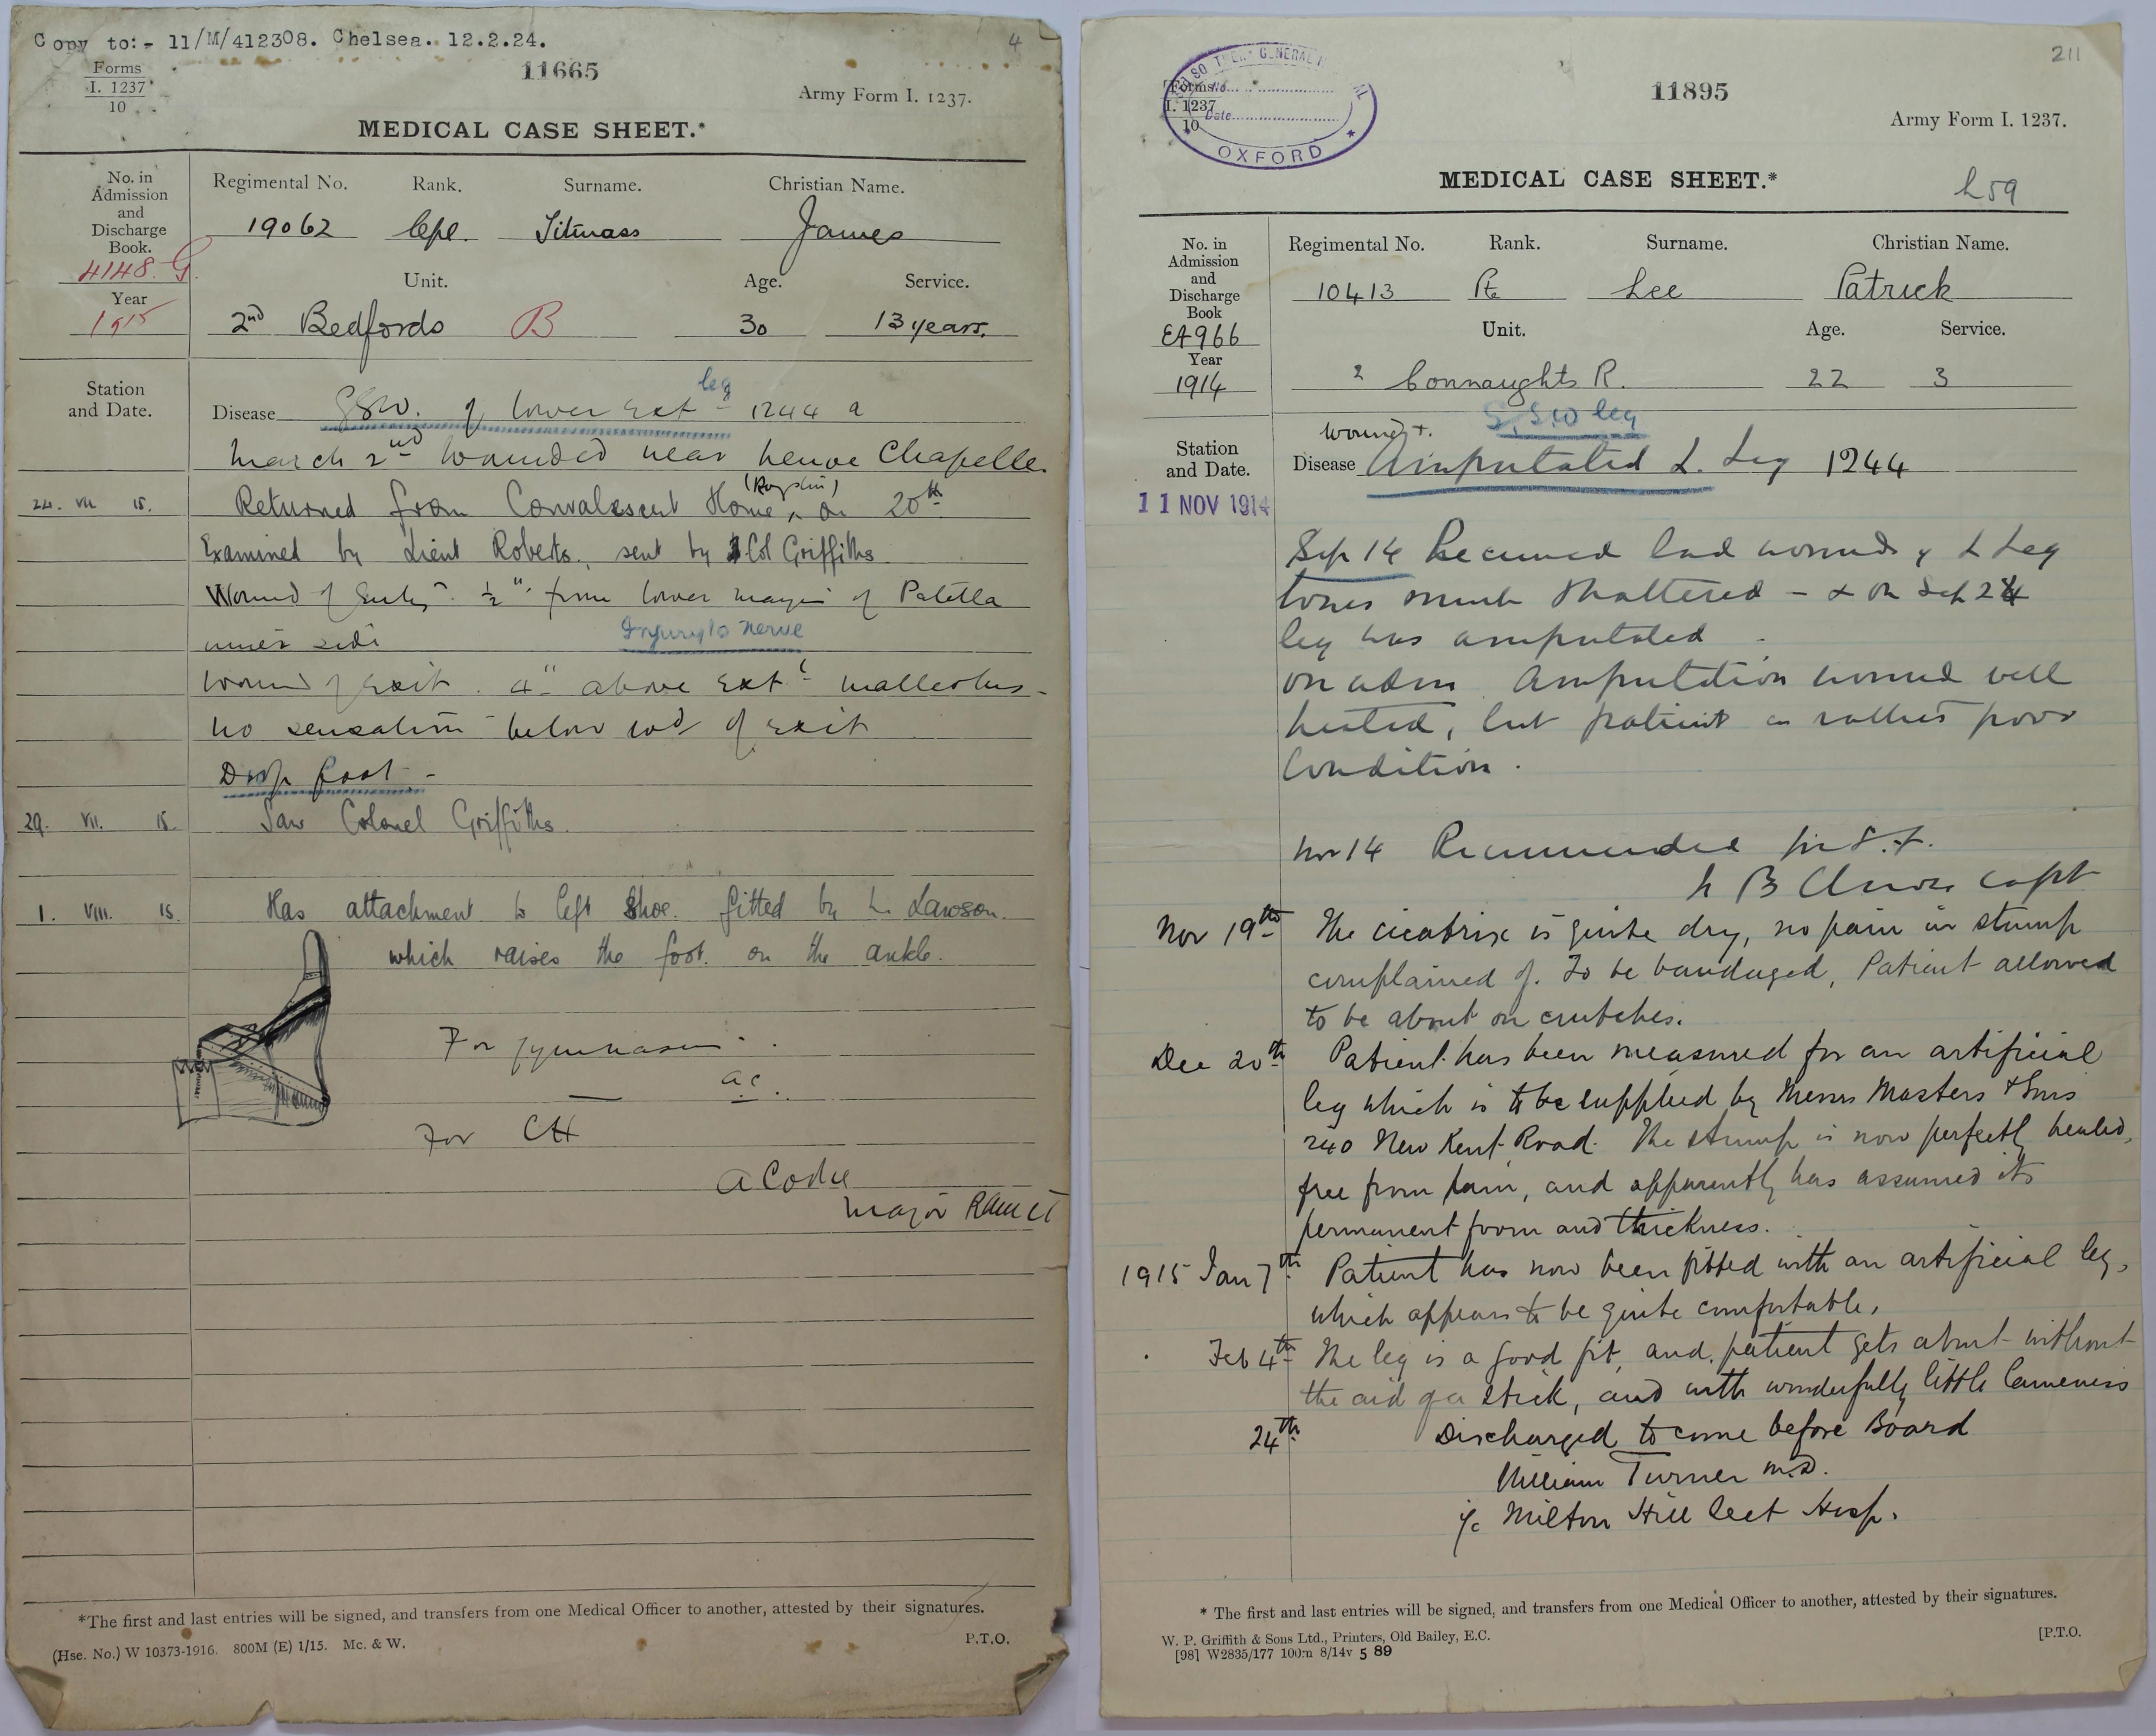 Copy to:- 11/M/412308. Chelsea. 12.2.24.
4
Forms
I. 1237
10
11665
Army Form I. 1237.
MEDICAL CASE SHEET.*
No. in
Admission
and
Discharge
Book.
4148. G.
Year
1915
Regimental No. Rank. Surname. Christian Name.
19062 Cpl. Titmass James
Unit. Age. Service.
2nd Bedfords B 30 13 years.
Station
and Date.
leg
Disease GSW. of lower Ext - 1244 a
March 2nd wounded near Neuve Chapelle.
24. VII 15. Returned from Convalescent Home, on 20th
Examined by Lieut Roberts, sent by Col Griffiths
Wound of Entry. ½" from lower margin of Patella
inner side
Injury to nerve
Wound of Exit. 4" above Ext. malleolus-
No sensation below wd of Exit
Drop foot -
29. VII. 15. Saw Colonel Griffiths.
1. VIII. 15. Has attachment to left shoe. fitted by L. Lawson.
which raises the foot. on the ankle.
For gymnasium.
a.c.
For CH
A Codie
Major RAMC T
*The first and last entries will be signed, and transfers from one Medical Officer to another, attested by their signatures.
(Hse. No.) W 10373-1916. 800M (E) 1/15. Mc. & W.
P.T.O.
211
GENERAL
No.
Date
OXFORD
Forms
I. 1237
10
11895
Army Form I. 1237.
MEDICAL CASE SHEET.*
L59
No. in
Admission
and
Discharge
Book
EA966
Year
1914
Regimental No. Rank. Surname. Christian Name.
10413 Pte Lee Patrick
Unit. Age. Service.
2 Connaughts R. 22 3
G.S.W leg
Station
and Date.
Wound +.
Disease Amputated L. Leg 1244
11 NOV 1914
Sep 14 Received bad wounds of L Leg
bones much shattered - & on Sep 24
leg was amputated.
On adm Amputation wound well
healed, but patient in rather poor
Condition.
Nov 14 Recommended for
Capt
Nov 19th The cicatrix is quite dry, no pain in stump
complained of. To be bandaged, Patient allowed
to be about on crutches.
Dec 20th Patient has been measured for an artificial
leg which is to be supplied by Messrs Masters & Sons
240 New Kent Road. The stump is now perfectly healed,
free from pain, and apparently has assumed its
permanent form and thickness.
1915 Jan 7th Patient has now been fitted with an artificial leg,
which appears to be quite comfortable.
Feb 4th The leg is a good fit, and patient gets about without
the aid of a stick, and with wonderfully little lameness
24th Discharged to come before Board
William Turner M.D.
i/c Milton Hill Sect Hosp.
* The first and last entries will be signed, and transfers from one Medical Officer to another, attested by their signatures.
W. P. Griffith & Sons Ltd., Printers, Old Bailey, E.C.
[98] W2835/177 100m 8/14v 5 89
[P.T.O.